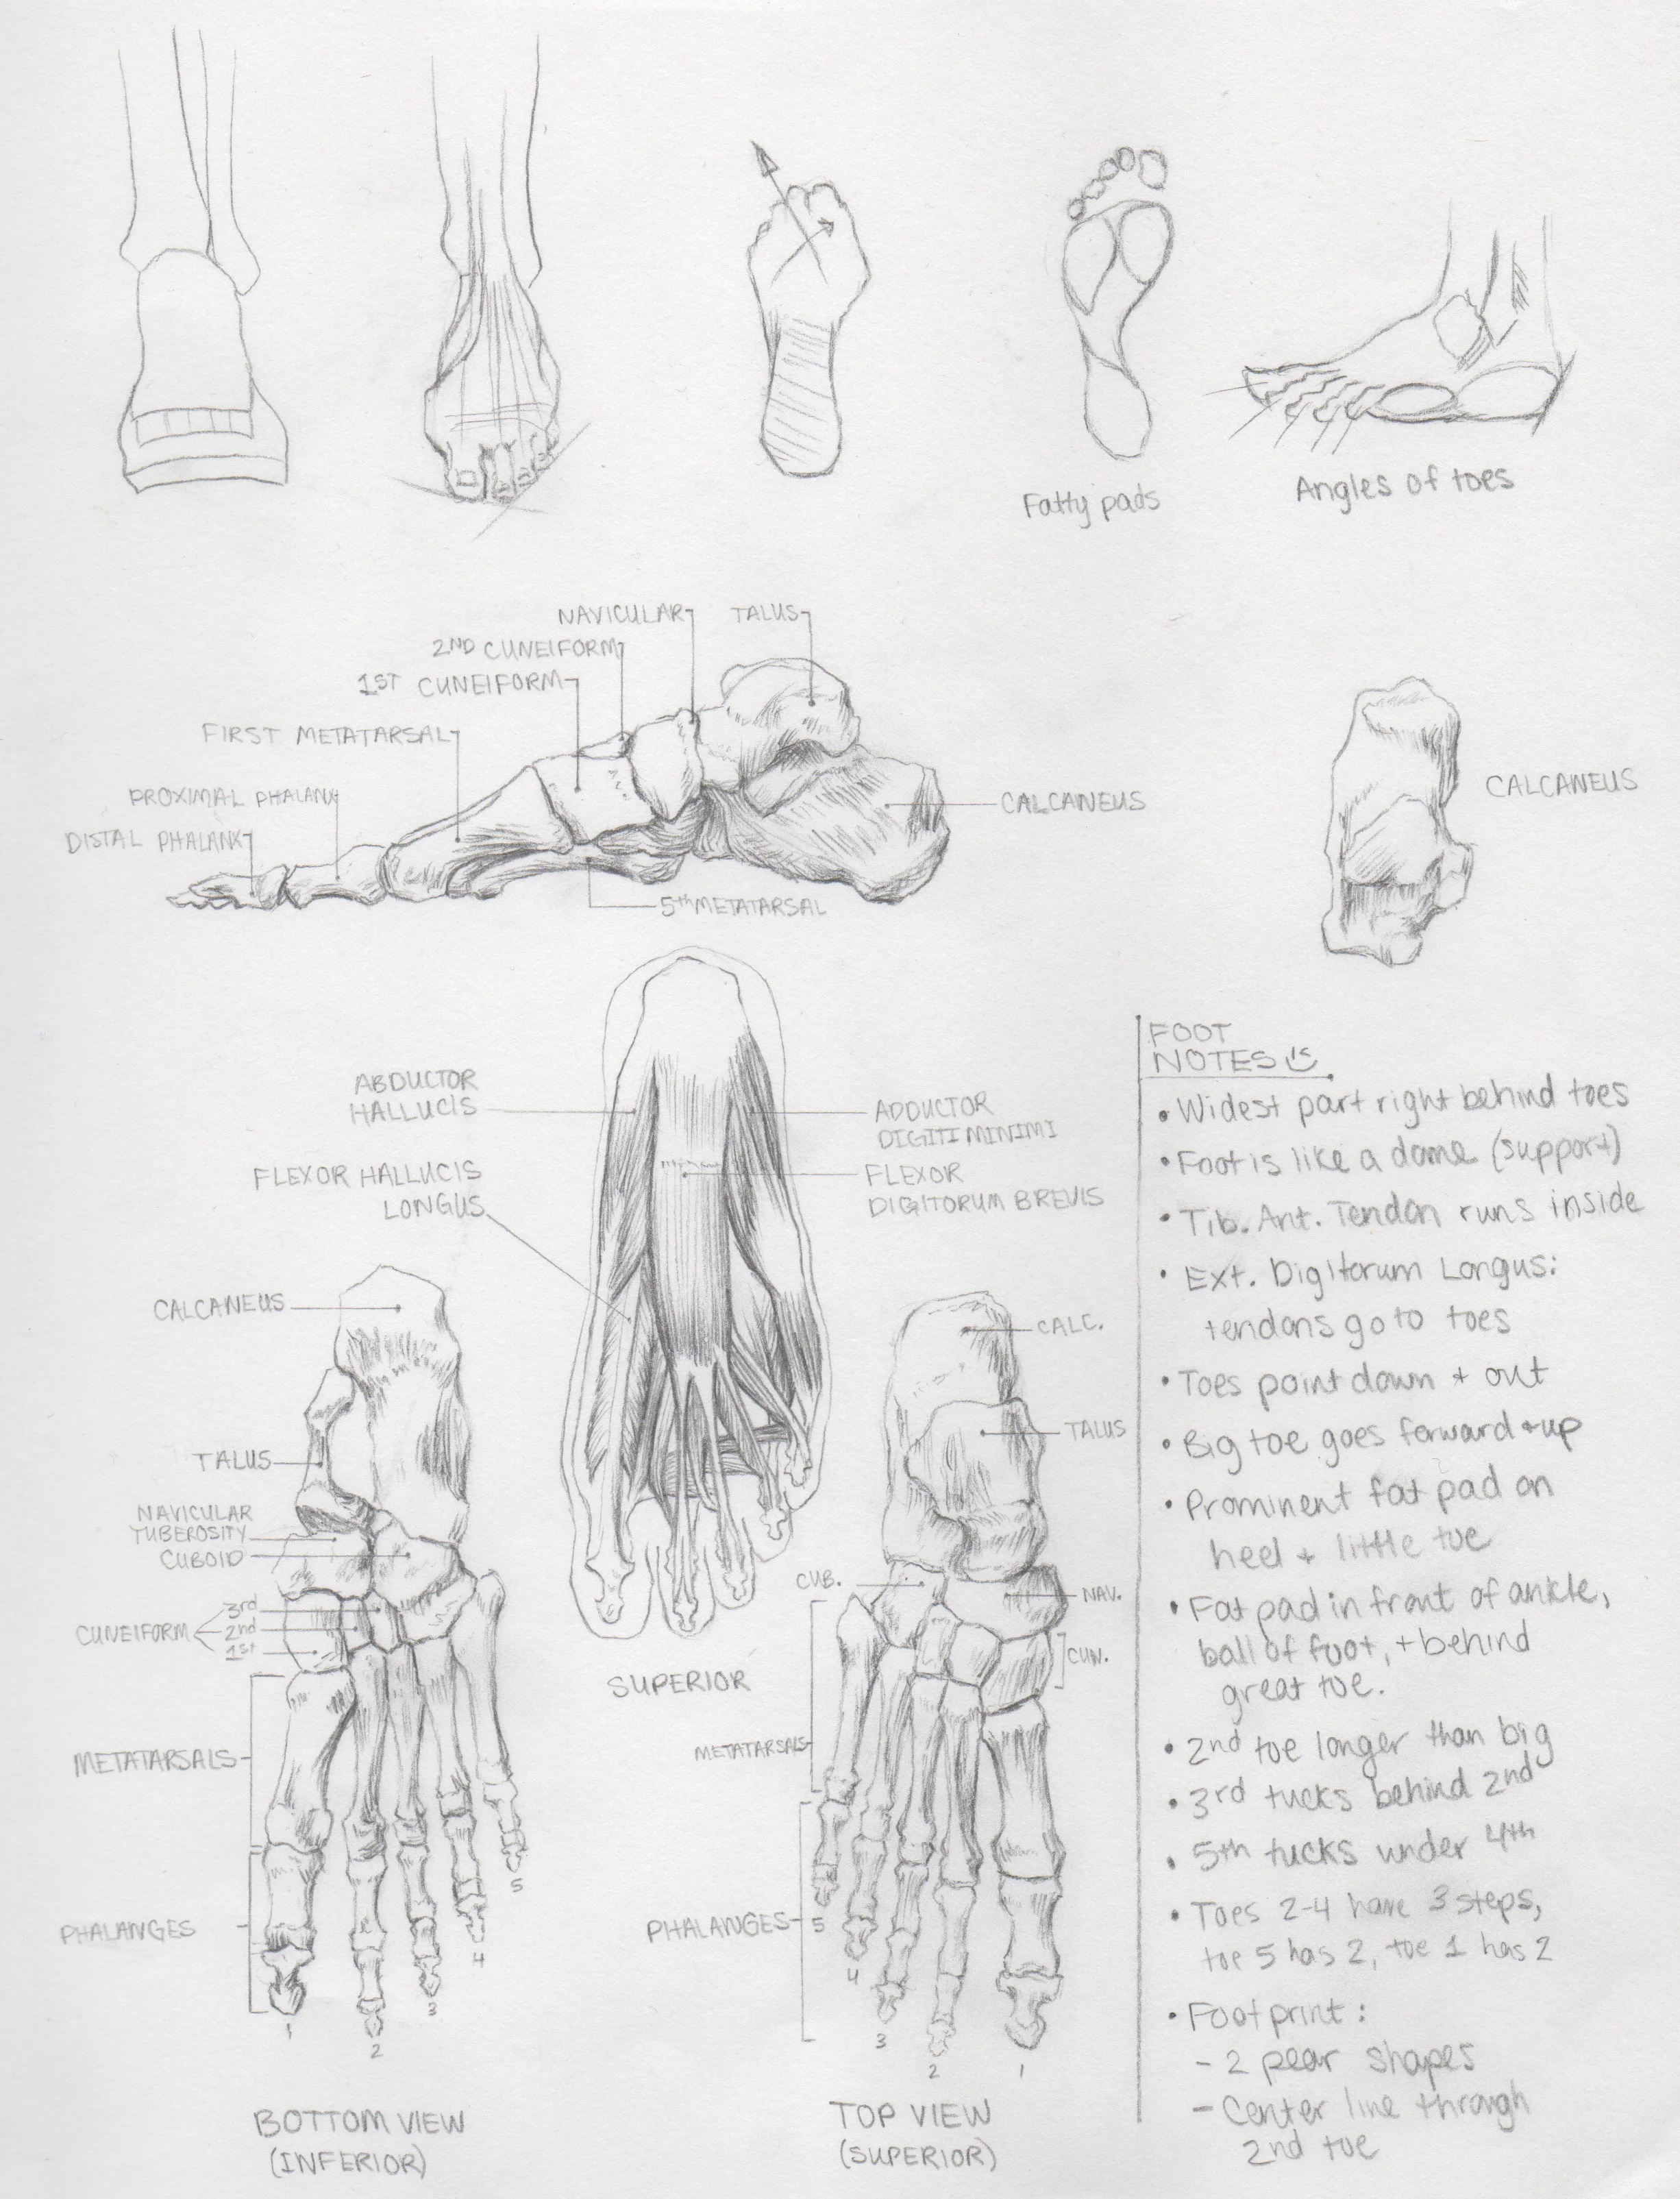 Fatty pads
Angles of toes
NAVICULAR
TALUS
2ND CUNEIFORM
1ST CUNEIFORM
FIRST METATARSAL
PROXIMAL PHALANX
DISTAL PHALANX
CALCANEUS
5th METATARSAL
CALCANEUS
ABDUCTOR
HALLUCIS
FLEXOR HALLUCIS
LONGUS
ADDUCTOR
DIGITI MINIMI
FLEXOR
DIGITORUM BREVIS
SUPERIOR
CALCANEUS
TALUS
NAVICULAR
TUBEROSITY
CUBOID
CUNEIFORM
3rd
2nd
1st
METATARSALS
PHALANGES
1
2
3
4
5
BOTTOM VIEW
(INFERIOR)
CALC.
TALUS
CUB.
NAV.
CUN.
METATARSALS
PHALANGES
5
4
3
2
1
TOP VIEW
(SUPERIOR)
FOOT
NOTES
• Widest part right behind toes
• Foot is like a dome (support)
• Tib. Ant. Tendon runs inside
• Ext. Digitorum Longus:
tendons go to toes
• Toes point down + out
• Big toe goes forward + up
• Prominent fat pad on
heel + little toe
• Fat pad in front of ankle,
ball of foot, + behind
great toe.
• 2nd toe longer than big
• 3rd tucks behind 2nd
• 5th tucks under 4th
• Toes 2-4 have 3 steps,
toe 5 has 2, toe 1 has 2
• Footprint:
- 2 pear shapes
- Center line through
2nd toe